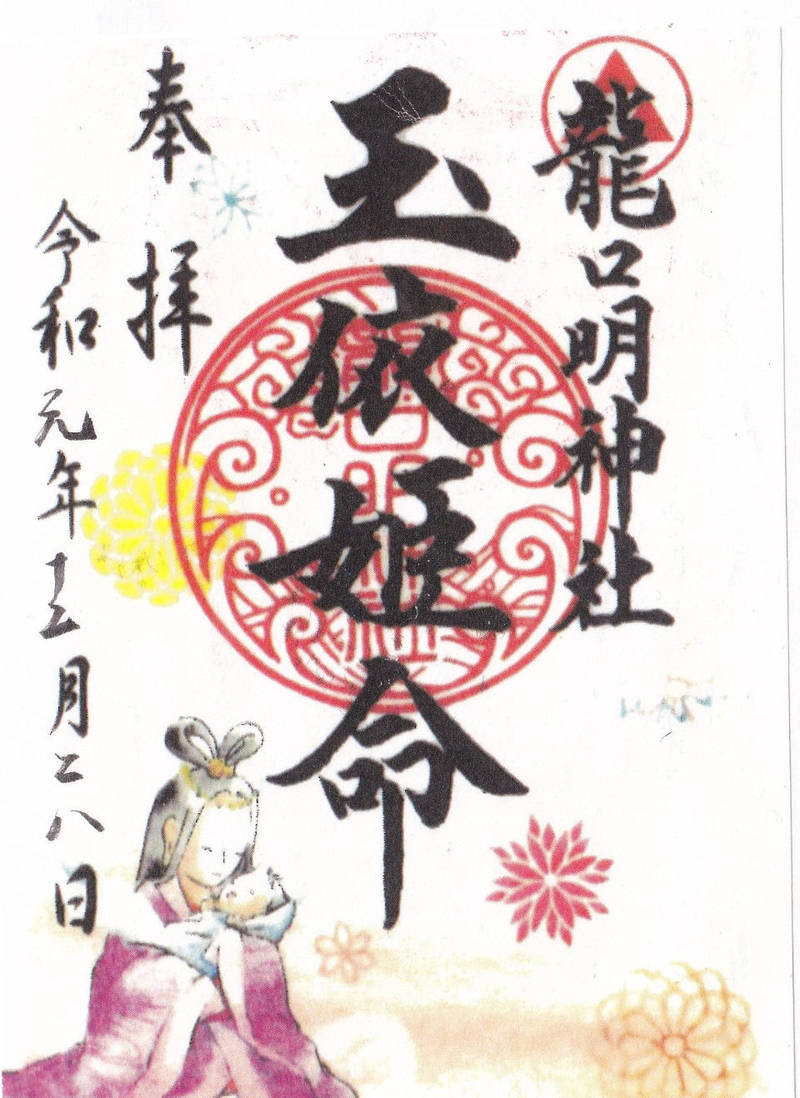 龍口明神社
玉依姫命
奉拝
令和元年十二月二八日